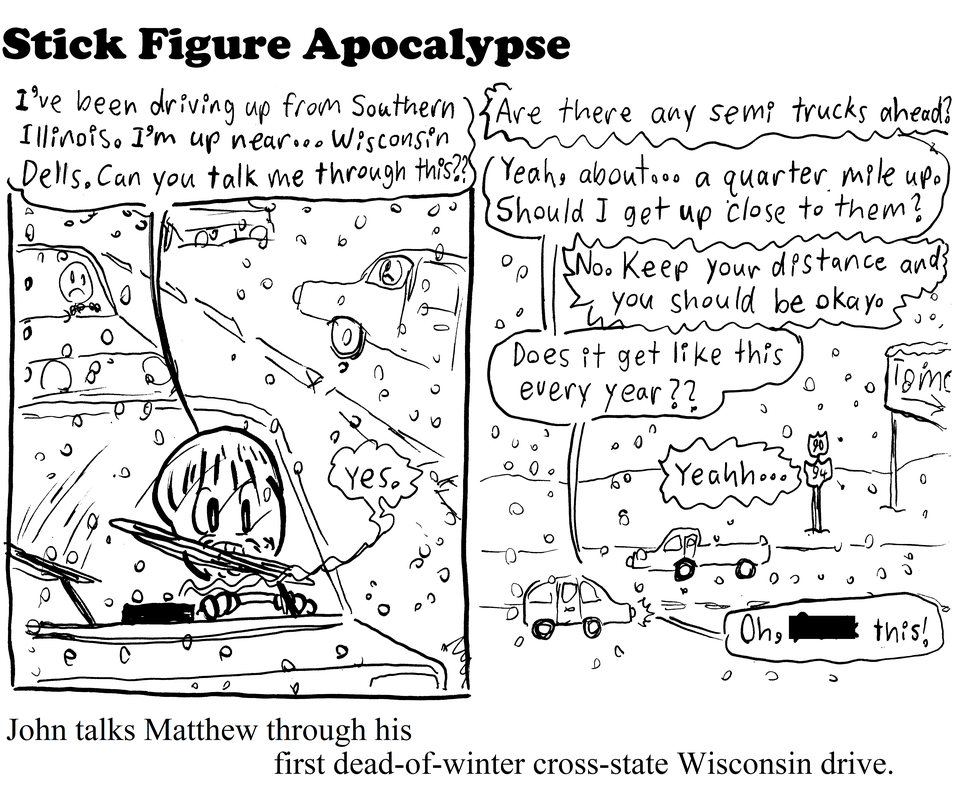 Stick Figure Apocalypse
I've been driving up from Southern
Illinois. I'm up near... Wisconsin
Dells. Can you talk me through this??
yes.
Are there any semi trucks ahead?
Yeah, about... a quarter mile up.
Should I get up close to them?
No. Keep your distance and
you should be okay.
Does it get like this
every year??
Yeahh...
90
94
Oh, this!
John talks Matthew through his
first dead-of-winter cross-state Wisconsin drive.